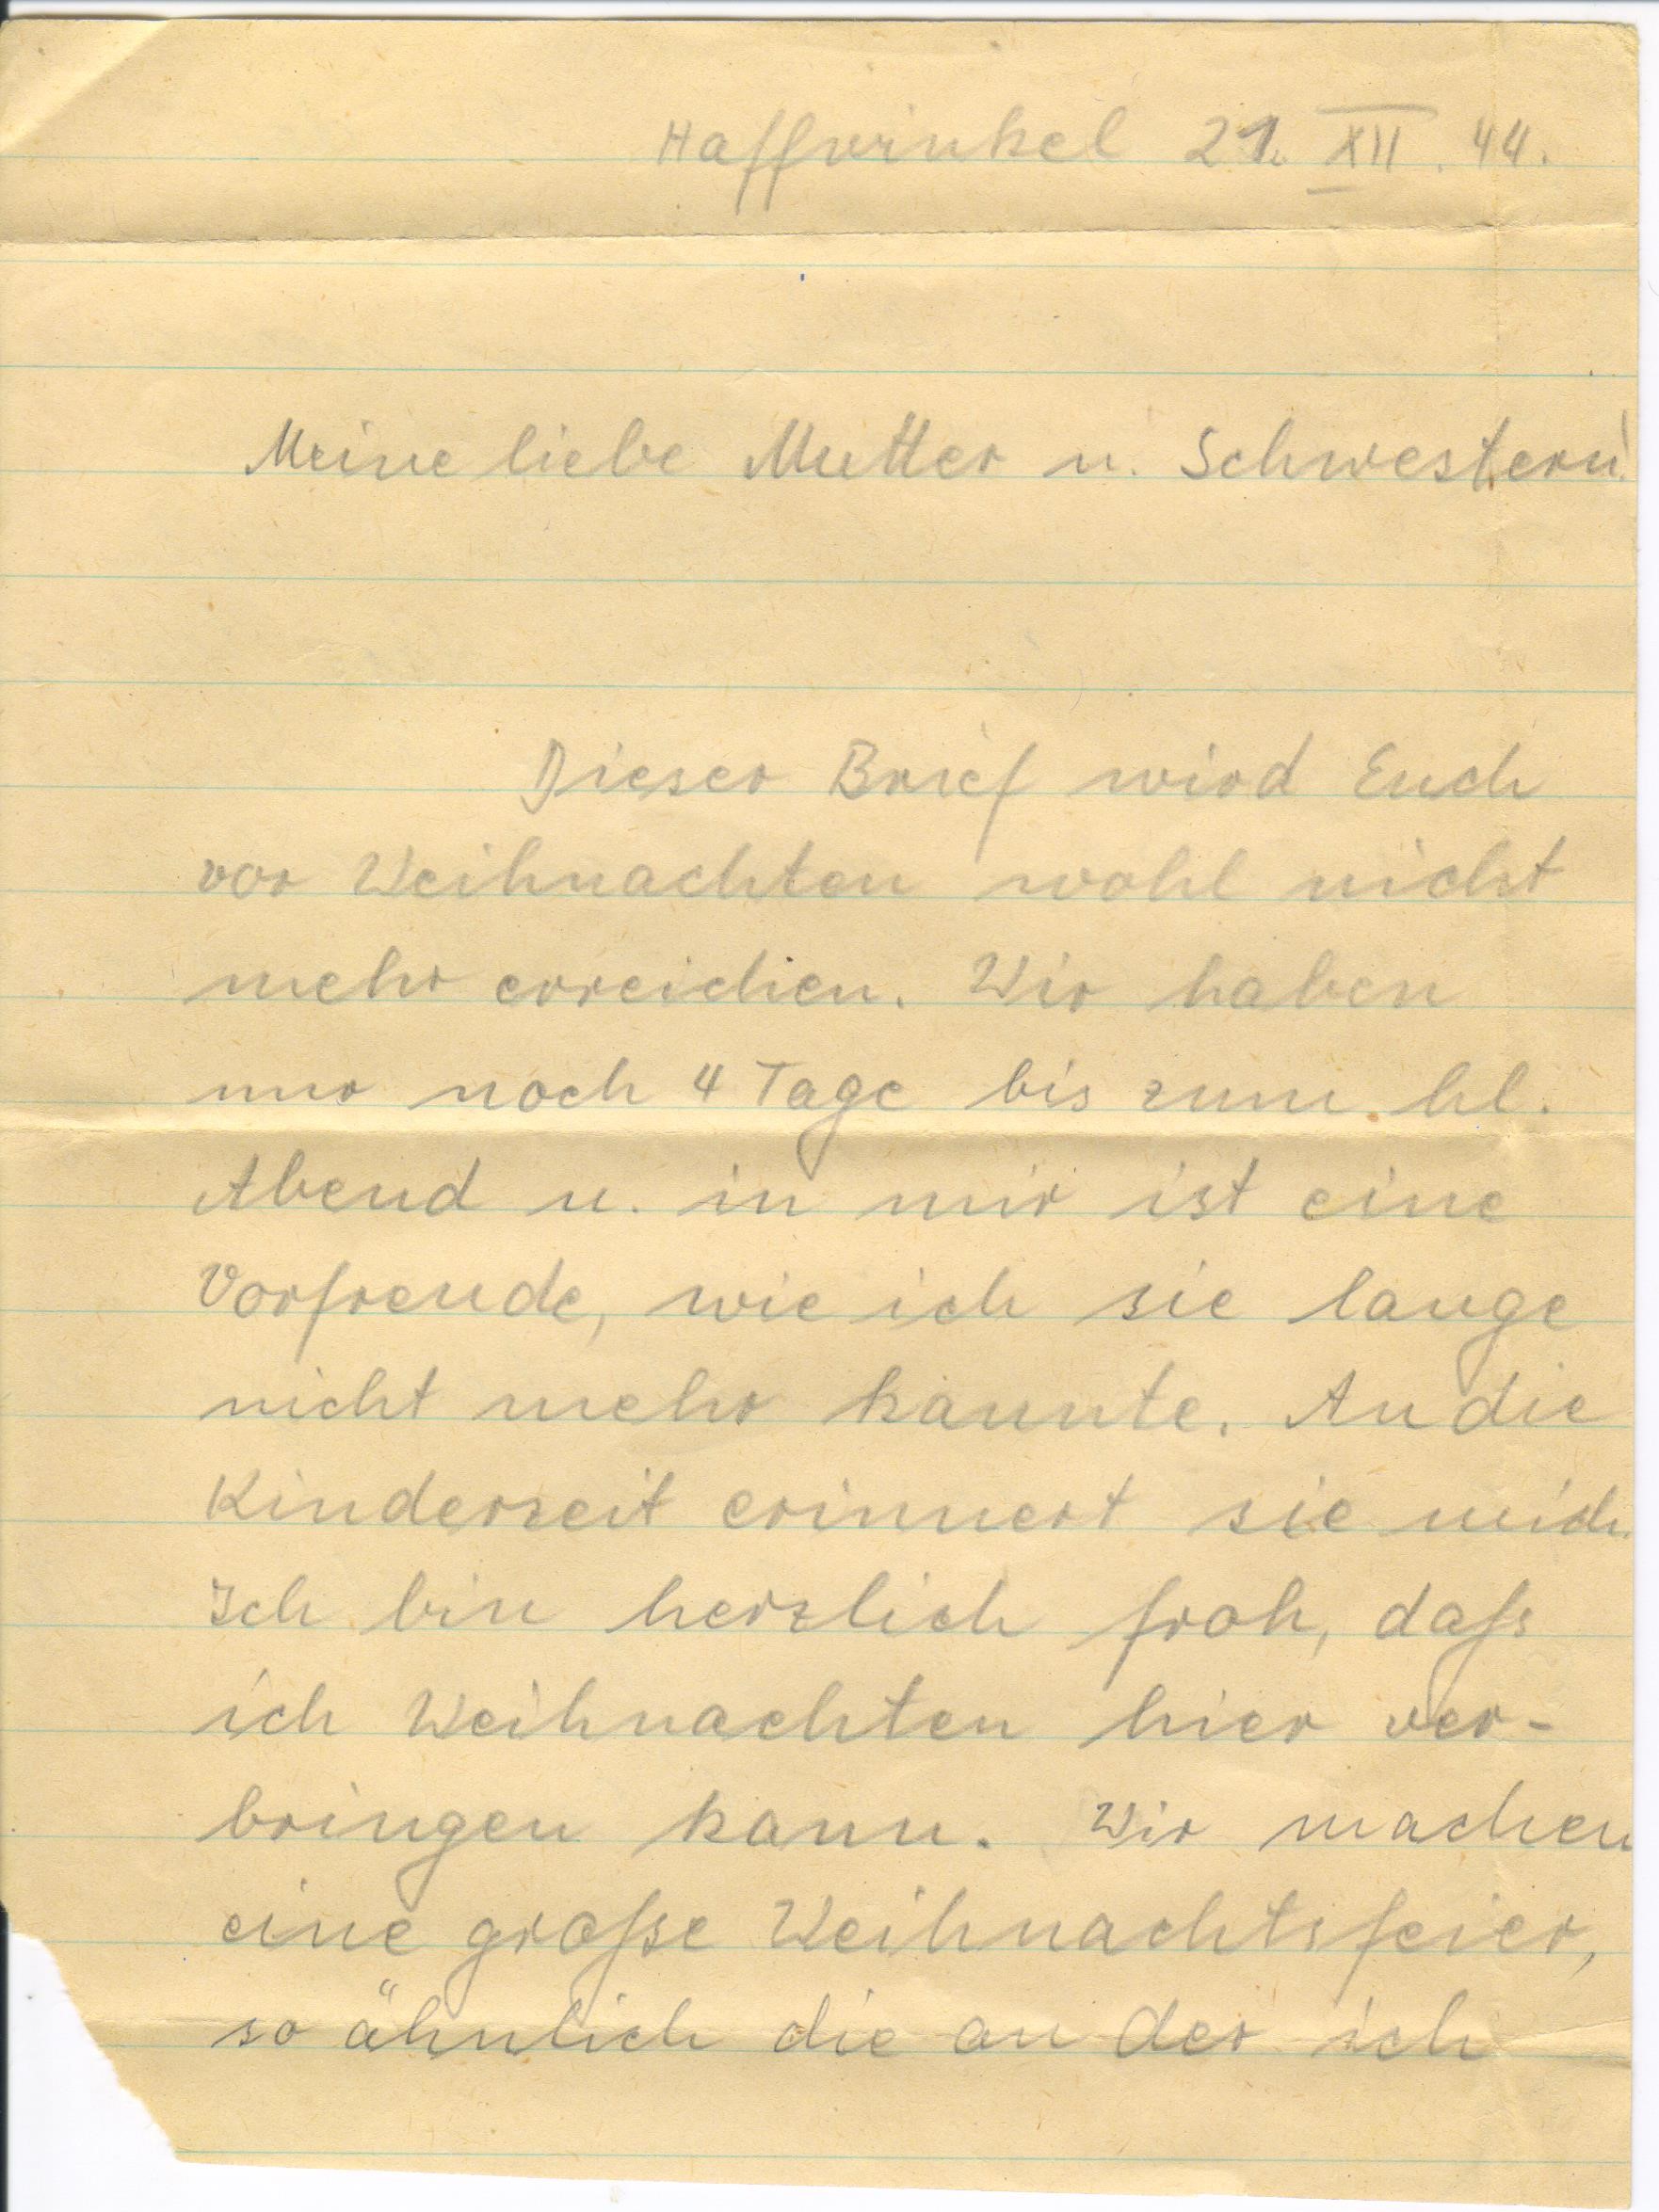 Haffwinkel 21. XII. 44.
Meine liebe Mutter u. Schwestern!
Dieser Brief wird Euch
vor Weihnachten wohl nicht
mehr erreichen. Wir haben
nur noch 4 Tage bis zum hl.
Abend u. in mir ist eine
Vorfreude, wie ich sie lange
nicht mehr kannte. An die
Kinderzeit erinnert sie mich.
Ich bin herzlich froh, dass
ich Weihnachten hier ver-
bringen kann. Wir machen
eine grosse Weihnachtsfeier,
so ähnlich die an der ich